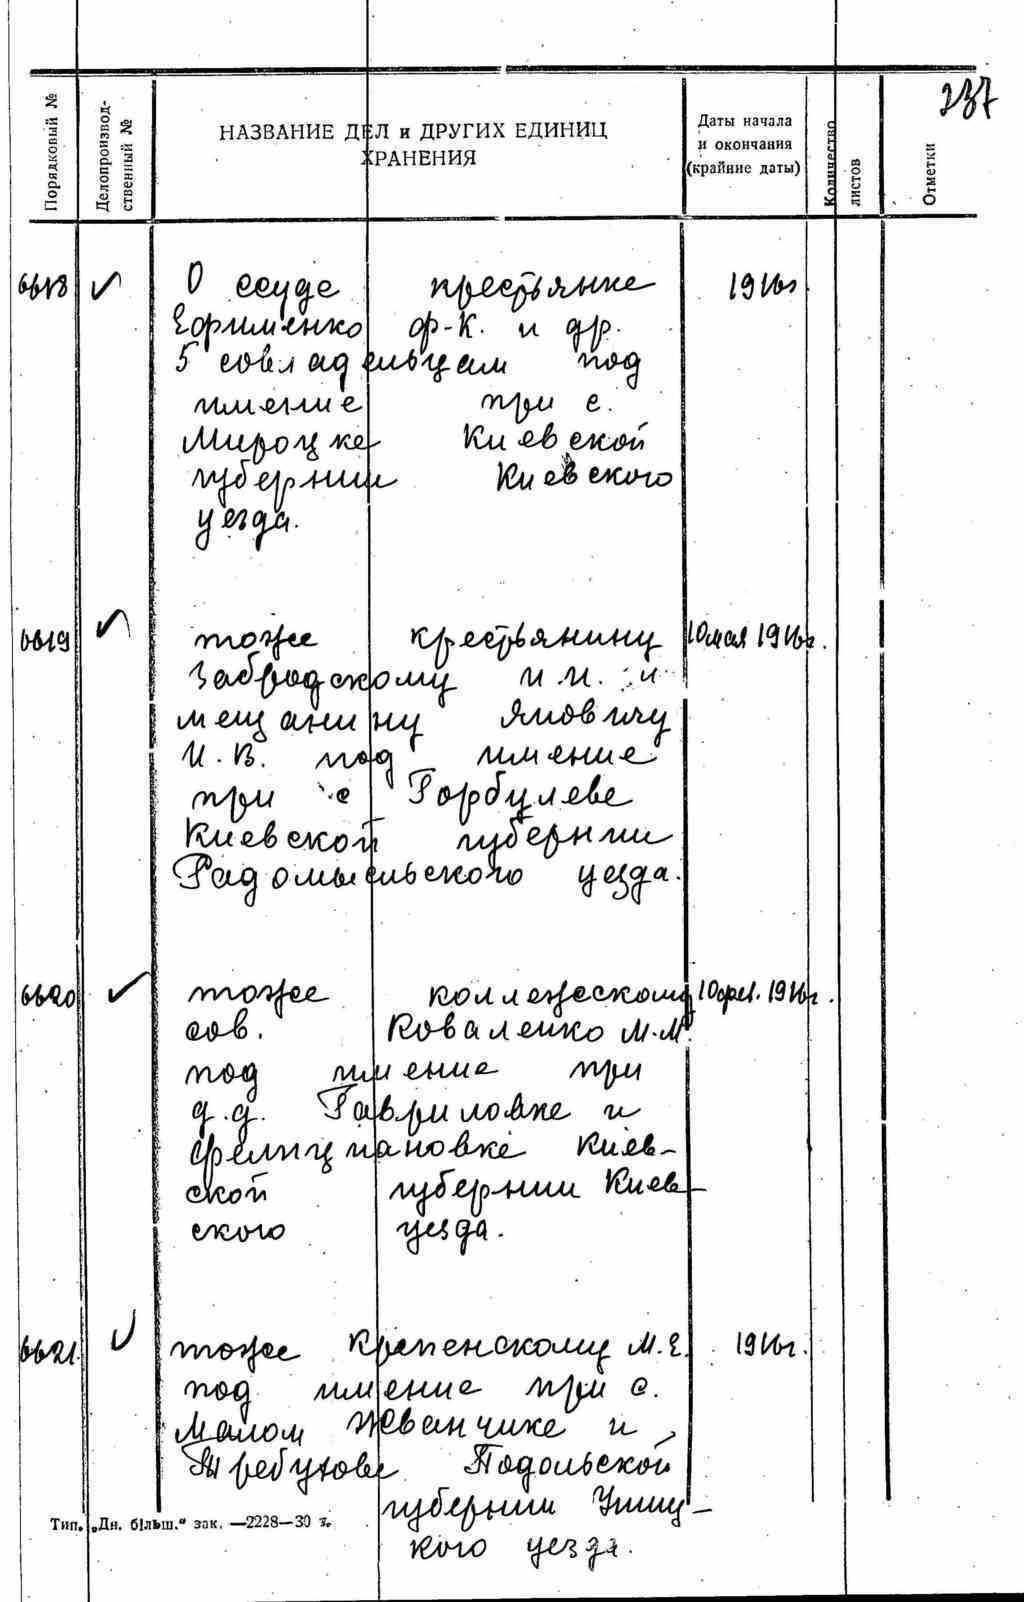 237
Порядковый №
Делопроизвод-
ственный №
НАЗВАНИЕ ДЕЛ и ДРУГИХ ЕДИНИЦ
ХРАНЕНИЯ
Даты начала
и окончания
(крайние даты)
Количество
листов
Отметки
6618 О ссуде крестьянке 1916г
Ефименко Ф-К. и др.
5 совладельцам под
имение при с.
Мироцке Киевской
губернии Киевского
уезда.
6619 тоже крестьянину 10 мая 1916г.
Забродскому И.И. и
мещанину Яновичу
И.В. под имение
при с Горбулеве
Киевской губернии
Радомысльского уезда.
6620 тоже коллежскому 10 фев. 1916г.
сов. Коваленко М.М.
под имение при
д.д. Гавриловке и
Фелициановке Киев-
ской губернии Киев-
ского уезда.
6621 тоже Крепенскому М.Е. 1916г.
под имение при с.
Малом Жванчике и
Требухове Подольской
губернии Ушиц-
кого уезда.
Тип. „Дн. більш.“ зак. —2228—30 т.